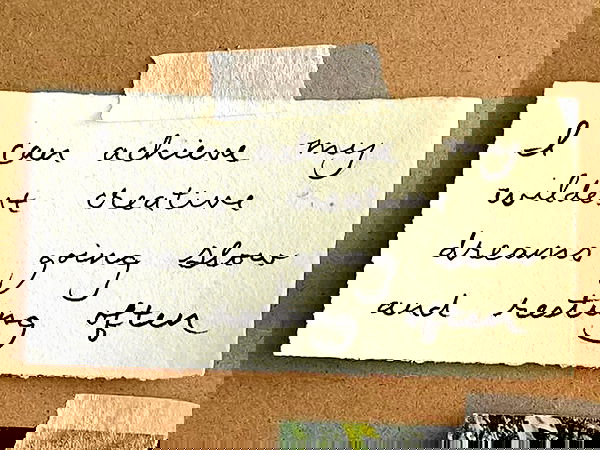 I can achieve my
wildest creative
dreams, going slow
and resting often